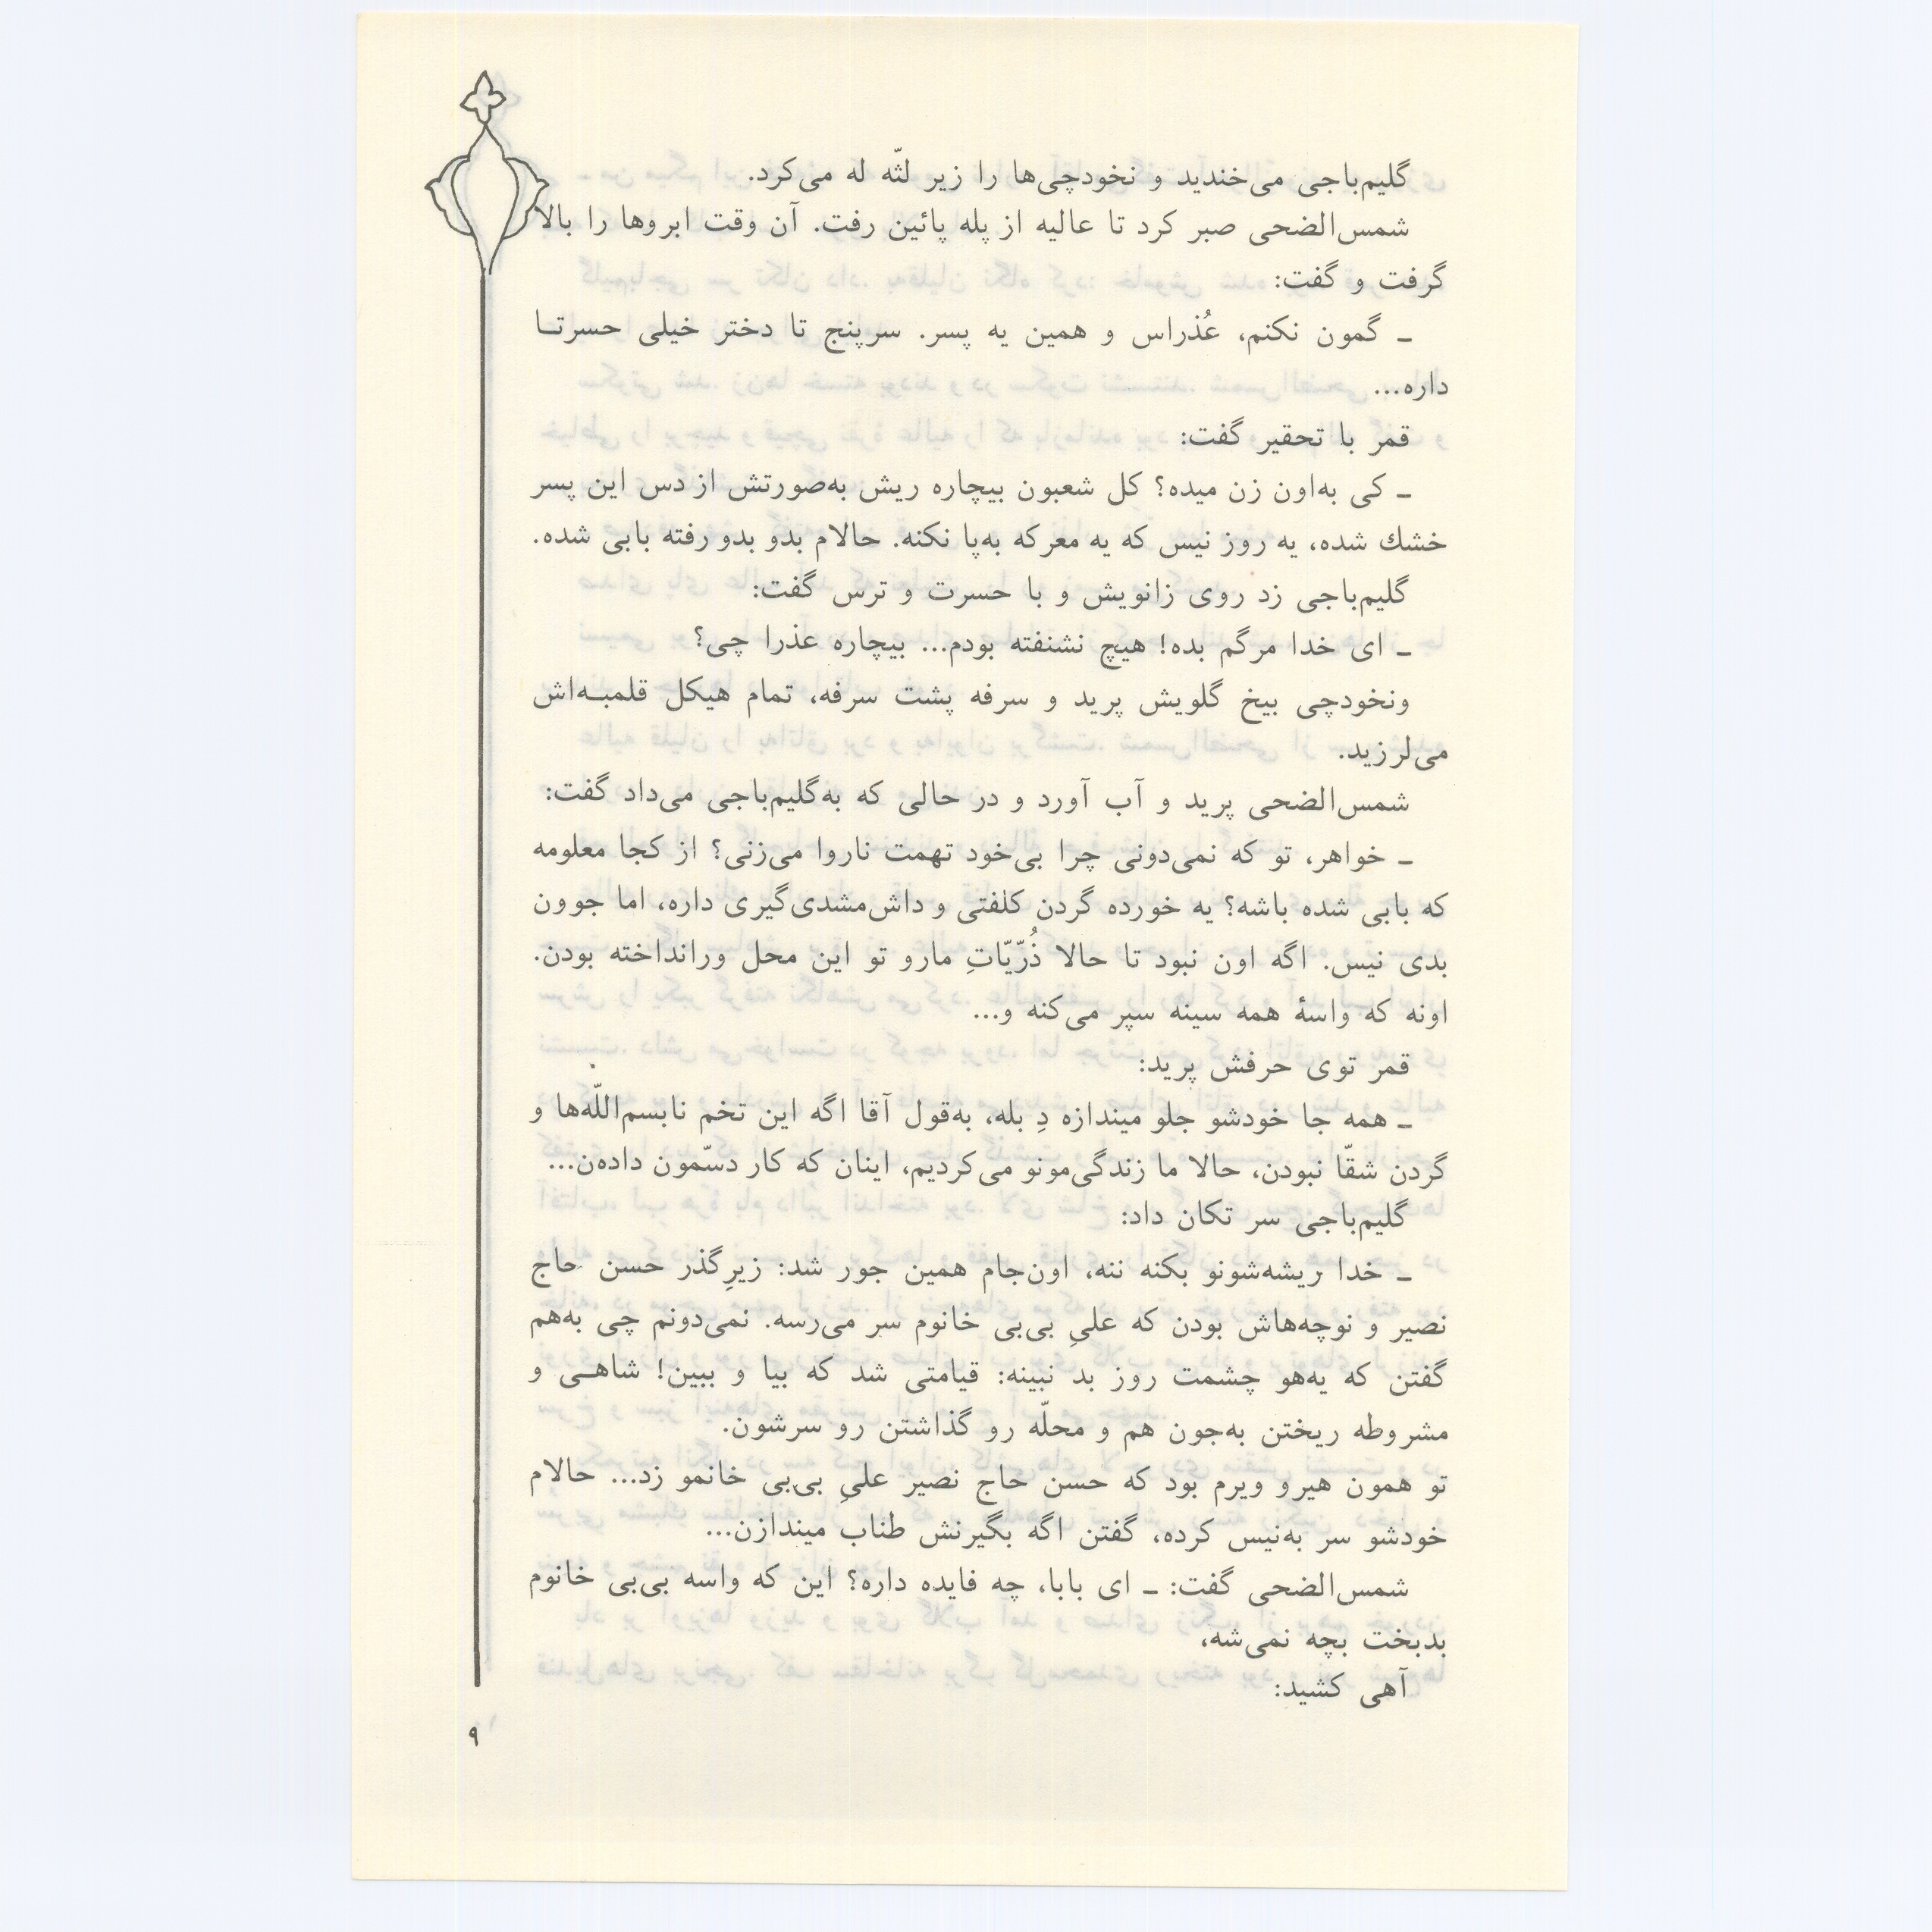 گلیم‌باجی می‌خندید و نخودچی‌ها را زیر لثّه له می‌کرد.
شمس‌الضحی صبر کرد تا عالیه از پله پائین رفت. آن وقت ابروها را بالا
گرفت و گفت:
ـ گمون نکنم، عُذراس و همین یه پسر. سرپنج تا دختر خیلی حسرتـا
داره...
قمر با تحقیر گفت:
ـ کی به‌اون زن میده؟ کل شعبون بیچاره ریش به‌صورتش از دس این پسر
خشك شده، یه روز نیس که یه معرکه به‌پا نکنه. حالام بدو بدو رفته بابی شده.
گلیم‌باجی زد روی زانویش و با حسرت و ترس گفت:
ـ ای خدا مرگم بده! هیچ نشنفته بودم... بیچاره عذرا چی؟
ونخودچی بیخ گلویش پرید و سرفه پشت سرفه، تمام هیکل قلمبـه‌اش
می‌لرزید.
شمس‌الضحی پرید و آب آورد و در حالی که به‌گلیم‌باجی می‌داد گفت:
ـ خواهر، تو که نمی‌دونی چرا بی‌خود تهمت ناروا می‌زنی؟ از کجا معلومه
که بابی شده باشه؟ یه خورده گردن کلفتی و داش‌مشدی‌گیری داره، اما جوون
بدی نیس. اگه اون نبود تا حالا ذُرّیّاتِ مارو تو این محل ورانداخته بودن.
اونه که واسهٔ همه سینه سپر می‌کنه و...
قمر توی حرفش پرید:
ـ همه جا خودشو جلو میندازه دِ بله، به‌قول آقا اگه این تخم نابسم‌اللّه‌ها و
گردن شقّا نبودن، حالا ما زندگی‌مونو می‌کردیم، اینان که کار دسّمون داده‌ن...
گلیم‌باجی سر تکان داد:
ـ خدا ریشه‌شونو بکنه ننه، اون‌جام همین جور شد: زیرِگذر حسن حاج
نصیر و نوچه‌هاش بودن که علیِ بی‌بی خانوم سر می‌رسه. نمی‌دونم چی به‌هم
گفتن که یه‌هو چشمت روز بد نبینه: قیامتی شد که بیا و ببین! شاهـی و
مشروطه ریختن به‌جون هم و محلّه رو گذاشتن رو سرشون.
تو همون هیرو ویرم بود که حسن حاج نصیر علیِ بی‌بی خانمو زد... حالام
خودشو سر به‌نیس کرده، گفتن اگه بگیرنش طناب میندازن...
شمس‌الضحی گفت: ـ ای بابا، چه فایده داره؟ این که واسه بی‌بی خانوم
بدبخت بچه نمی‌شه،
آهی کشید:
۹